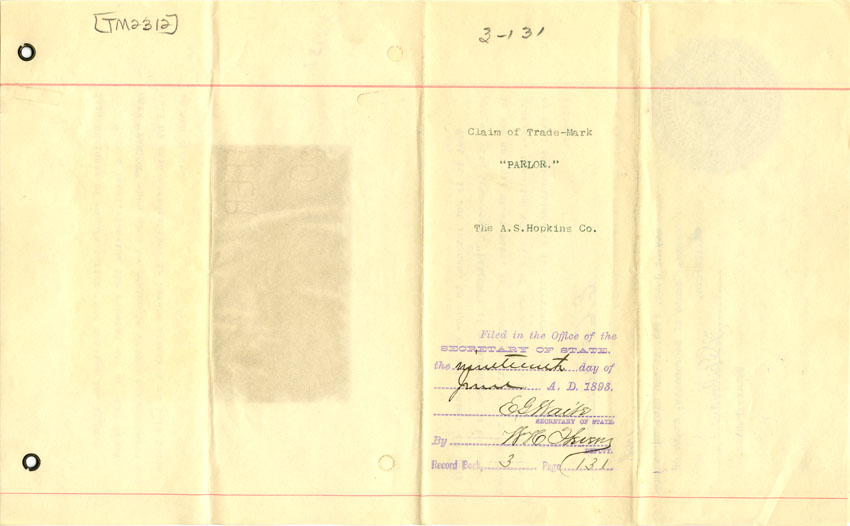 [TM2312]
3-131
Claim of Trade-Mark
"PARLOR."
The A.S.Hopkins Co.
Filed in the Office of the
SECRETARY OF STATE.
the nineteenth day of
June A. D. 1893.
E G Waite
SECRETARY OF STATE.
By W H
DEPUTY.
Record Book, 3 Page 131